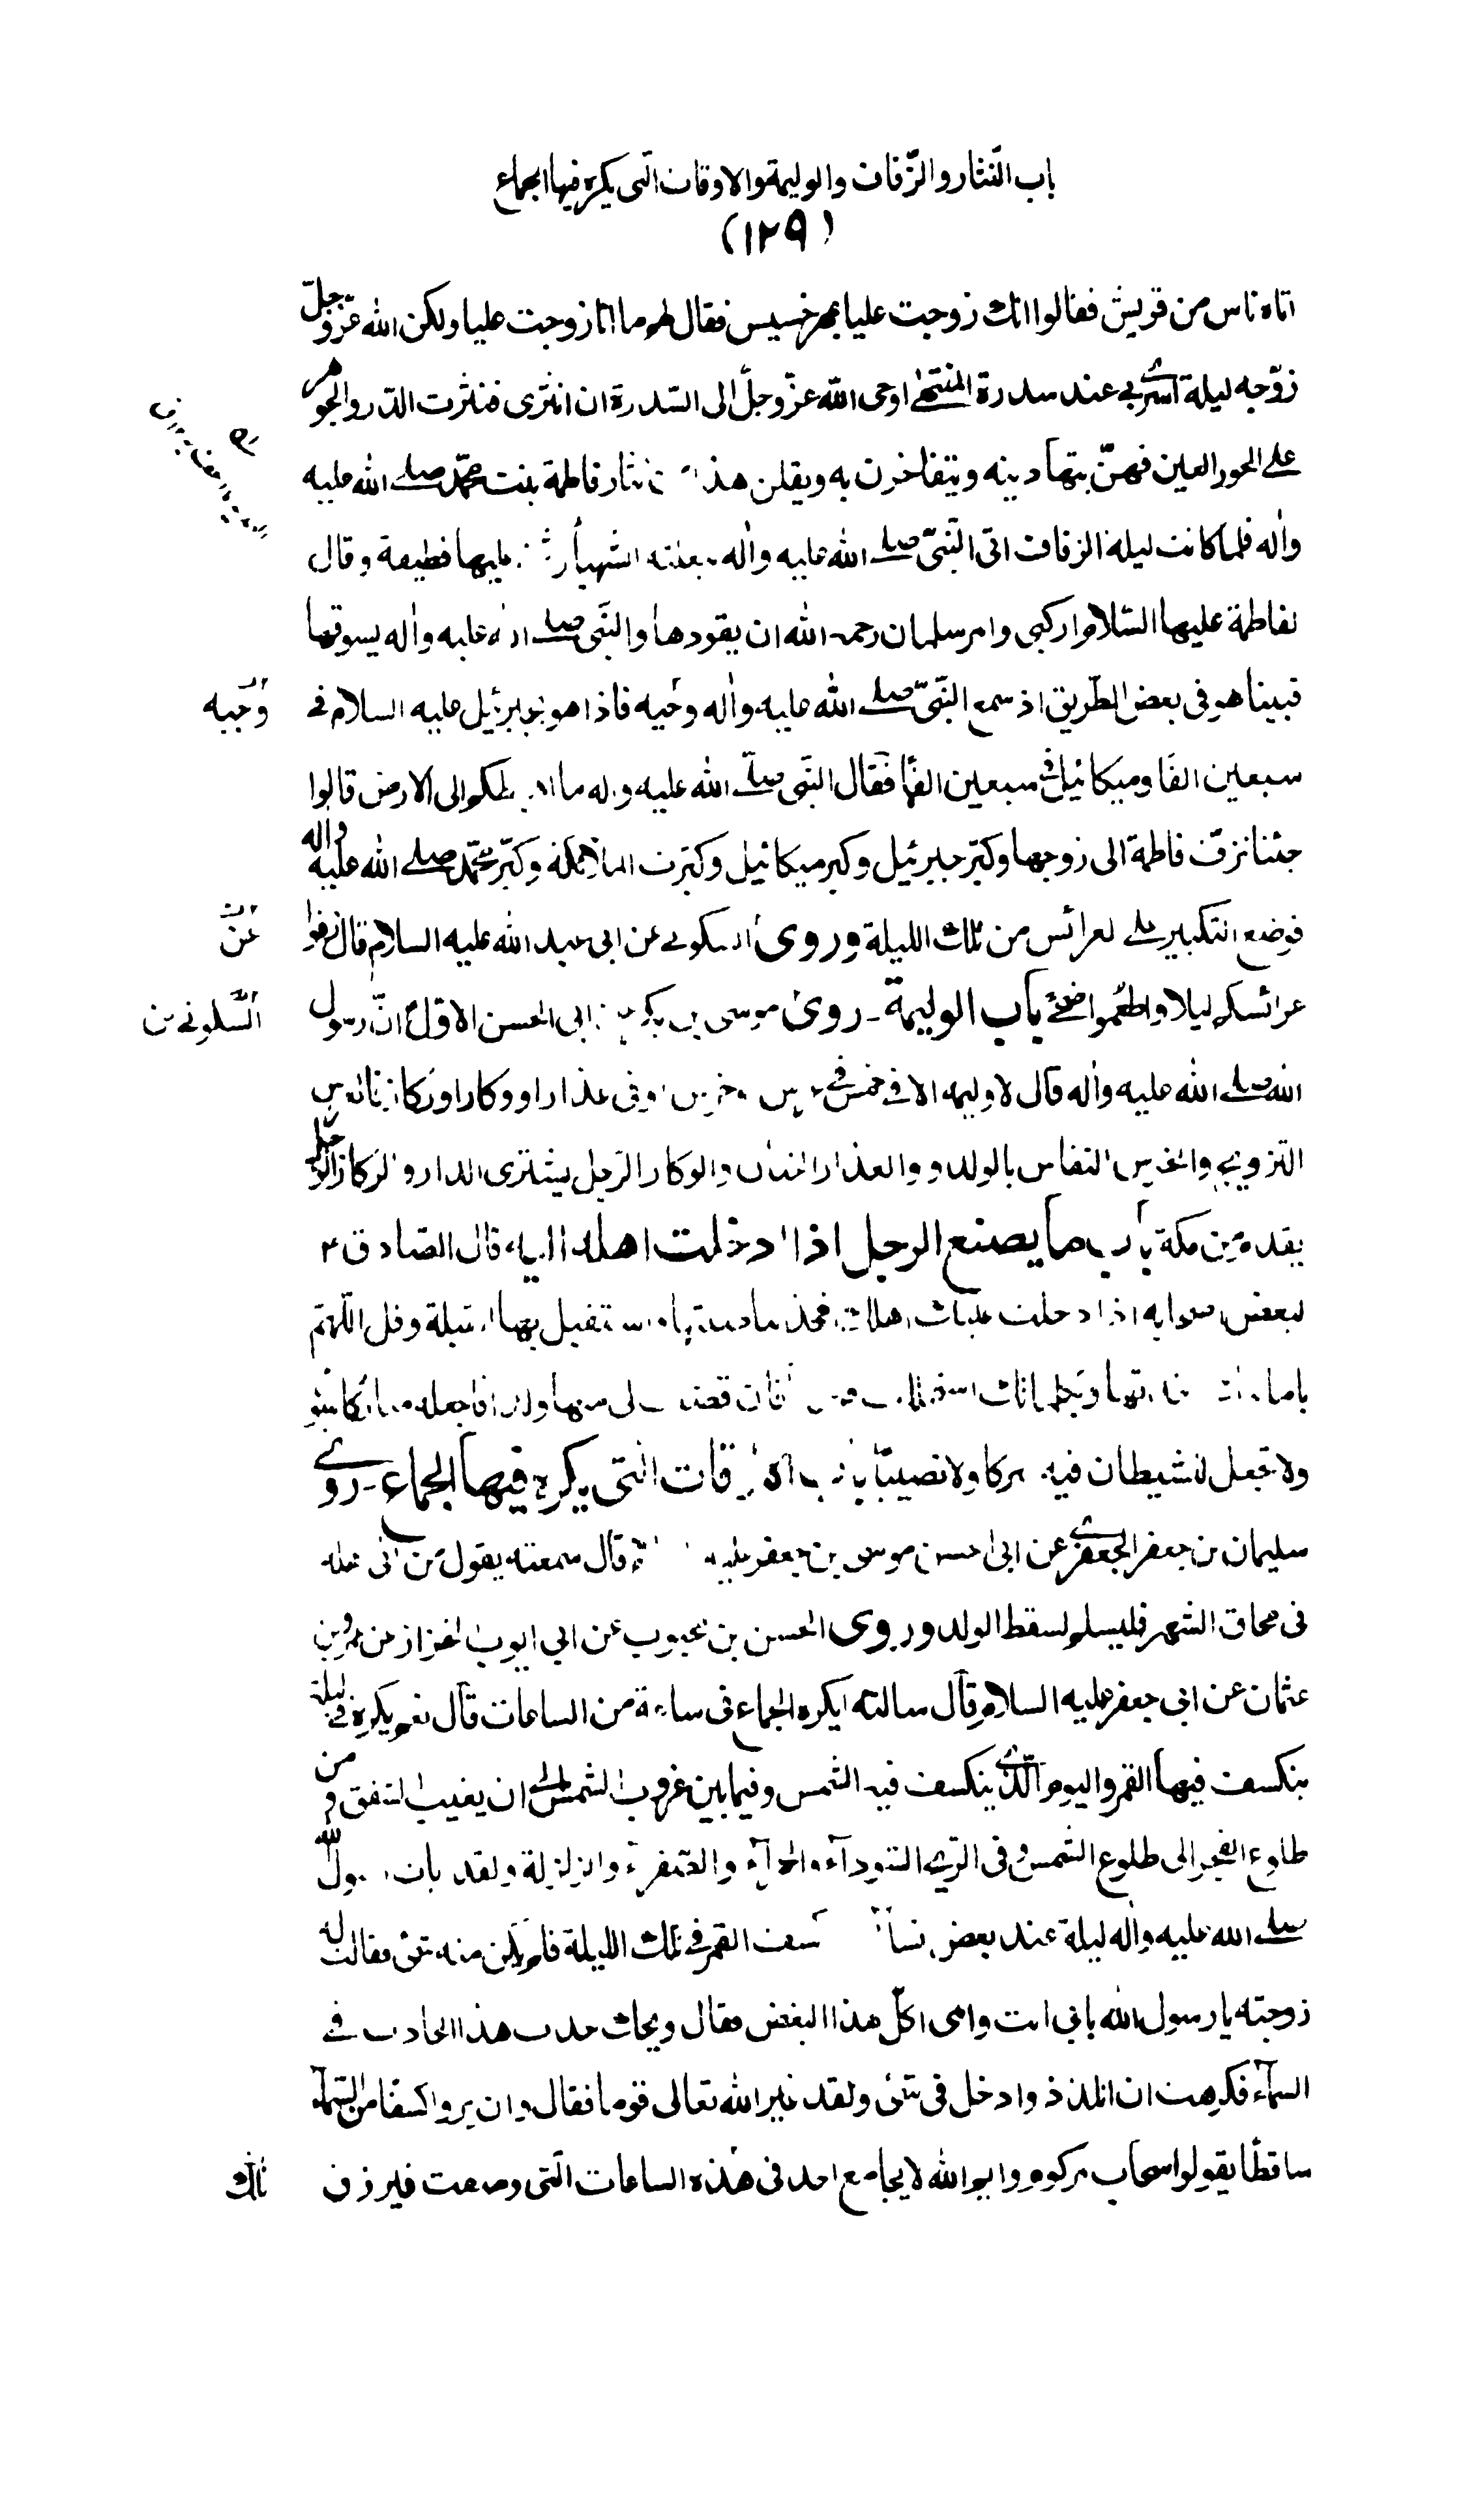 باب النثار والزفاف والوليمة والاوقات التى يكره فيها الجماع
(١٢٩)
اتاه ناس من قريش فقالوا انك زوجت عليا بمهر خسيس فقال لهم ما انا زوجت عليا ولكن الله عزّ وجلّ
زوّجه ليلة اسرى بى عند سدرة المنتهى اوحى الله عزّ وجلّ الى السّدرة ان انثرى فنثرت الدّر والجوهر
على الحور العين فهنّ يتهادينه ويتفاخرن به ويقلن هذا من نثار فاطمة بنت محمّد صلى الله عليه
واٰله فلما كانت ليلة الزفاف اتى النّبىّ صلى الله عليه واٰله ببغلته الشهباء عليها قطيفة وقال
لفاطمة عليها السّلام اركبى وامر سلمان رحمه الله ان يقودها والنّبى صلى الله عليه واٰله يسوقها
فبينا هو فى بعض الطّريق اذ سمع النّبىّ صلى الله عليه واٰله وجبه فاذا هو بجبرئيل عليه السلام فى
وَجبه
سبعين الفًا وميكائيل فى سبعين الفًا فقال النّبى صلّى الله عليه واله ما اهبطكم الى الارض قالوا
جئنا نزفّ فاطمة الى زوجها وكبّر جبرئيل وكبر ميكائيل وكبّرت الملائكة وكبّر محمّد صلى الله عليه واٰله
فوضع التكبير على العرائس من تلك الليلة وروى السكونى عن ابى عبد الله عليه السلام قال زفوا
عرائسكم ليلا واطعموا ضحى باب الوليمة ـ روى موسى بن بكر عن ابى الحسن الاوّل انّ رسول
الله صلى الله عليه واٰله قال لا وليمه الا فى خمس فى عرس وخرس او فى عذار او وكار او ركاز فالعرس
التزويج والخرس النفاس بالولد والعذار الختان والوكار الرّجل يشترى الدار والركاز الرّجل
يقدم من مكة باب ما يصنع الرجل اذا ادخلت اهله اليه قال الصّادق ع
لبعض اصحابه اذا دخلت عليك اهلك فخذ بناصيتها واستقبل بها القبلة وقل اللّهمّ
ولا تجعل للشيطان فيه شركا ولا نصيبًا باب الاوقات التى يكره فيها الجماع ـ روى
سليمان بن جعفر الجعفرى عن ابى الحسن موسى بن جعفر عليه قال سمعته يقول من اتى اهله
فى محاق الشهر فليسلم لسقط الولد وروى الحسن بن محبوب عن ابى ايوب الخزاز عن عمرو بن
عثمان عن ابى جعفر عليه السلام قال سالته ايكره الجماع فى ساعة من الساعات قال نعم يكره فى ليلة
ينكسف فيها القمر واليوم الّذى ينكسف فيه الشمس وفيما بين غروب الشمس الى ان يغيب الشفق ومن
طلوع الفجر الى طلوع الشمس وفى الريح السّوداء والحمراء والصّفراء والزلزلة ولقد بات رسول الله
صلى الله عليه واٰله ليلة عند بعض نسائه فانكسف القمر فى تلك الليلة فلم يكن منه شئ فقالت له
زوجته يا رسول الله بابى انت وامى اكلّ هذا البغض فقال ويحك حدث هذا الحادث فى
السمآء فكرهت ان اتلذذ وادخل فى شئ ولقد عيّر الله تعالى قوما فقال وان يروا كسفا من السّمآء
ساقطًا يقولوا سحاب مركوم وايم الله لا يجامع احد فى هذه الساعات التى وصفت فيرزق